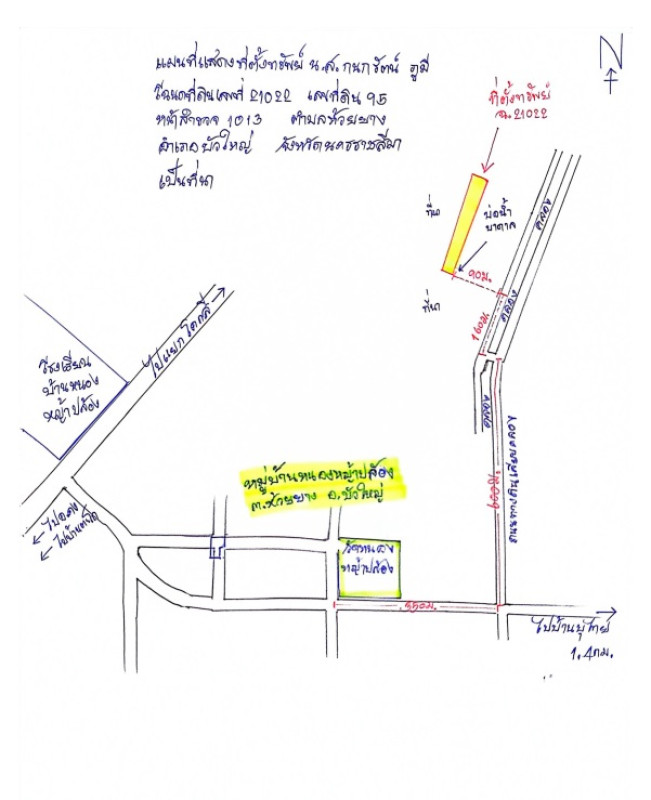 แผนที่แสดงที่ตั้งทรัพย์ น.ส. กนกรัตน์ ภูมี
โฉนดที่ดินเลขที่ 21022 เลขที่ดิน 95
หน้าสำรวจ 1013 ตำบลห้วยยาง
อำเภอบัวใหญ่ จังหวัดนครราชสีมา
เป็นที่นา
N
ที่ตั้งทรัพย์
ฉ. 21022
ที่นา
บ่อน้ำ
บาดาล
90ม.
ที่นา
160ม.
คลอง
คลอง
คลอง
ไปแยกโคกสี
โรงเรียน
บ้านหนอง
หญ้าปล้อง
หมู่บ้านหนองหญ้าปล้อง
ต.ห้วยยาง อ.บัวใหญ่
วัดหนอง
หญ้าปล้อง
550ม.
ไปบ้าน
1.4กม.